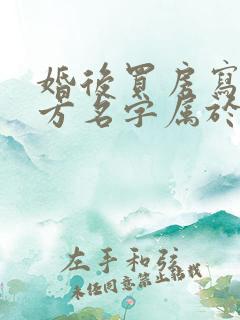 婚後買房寫
方名字屬於
左手和弦
未經同意禁止轉載